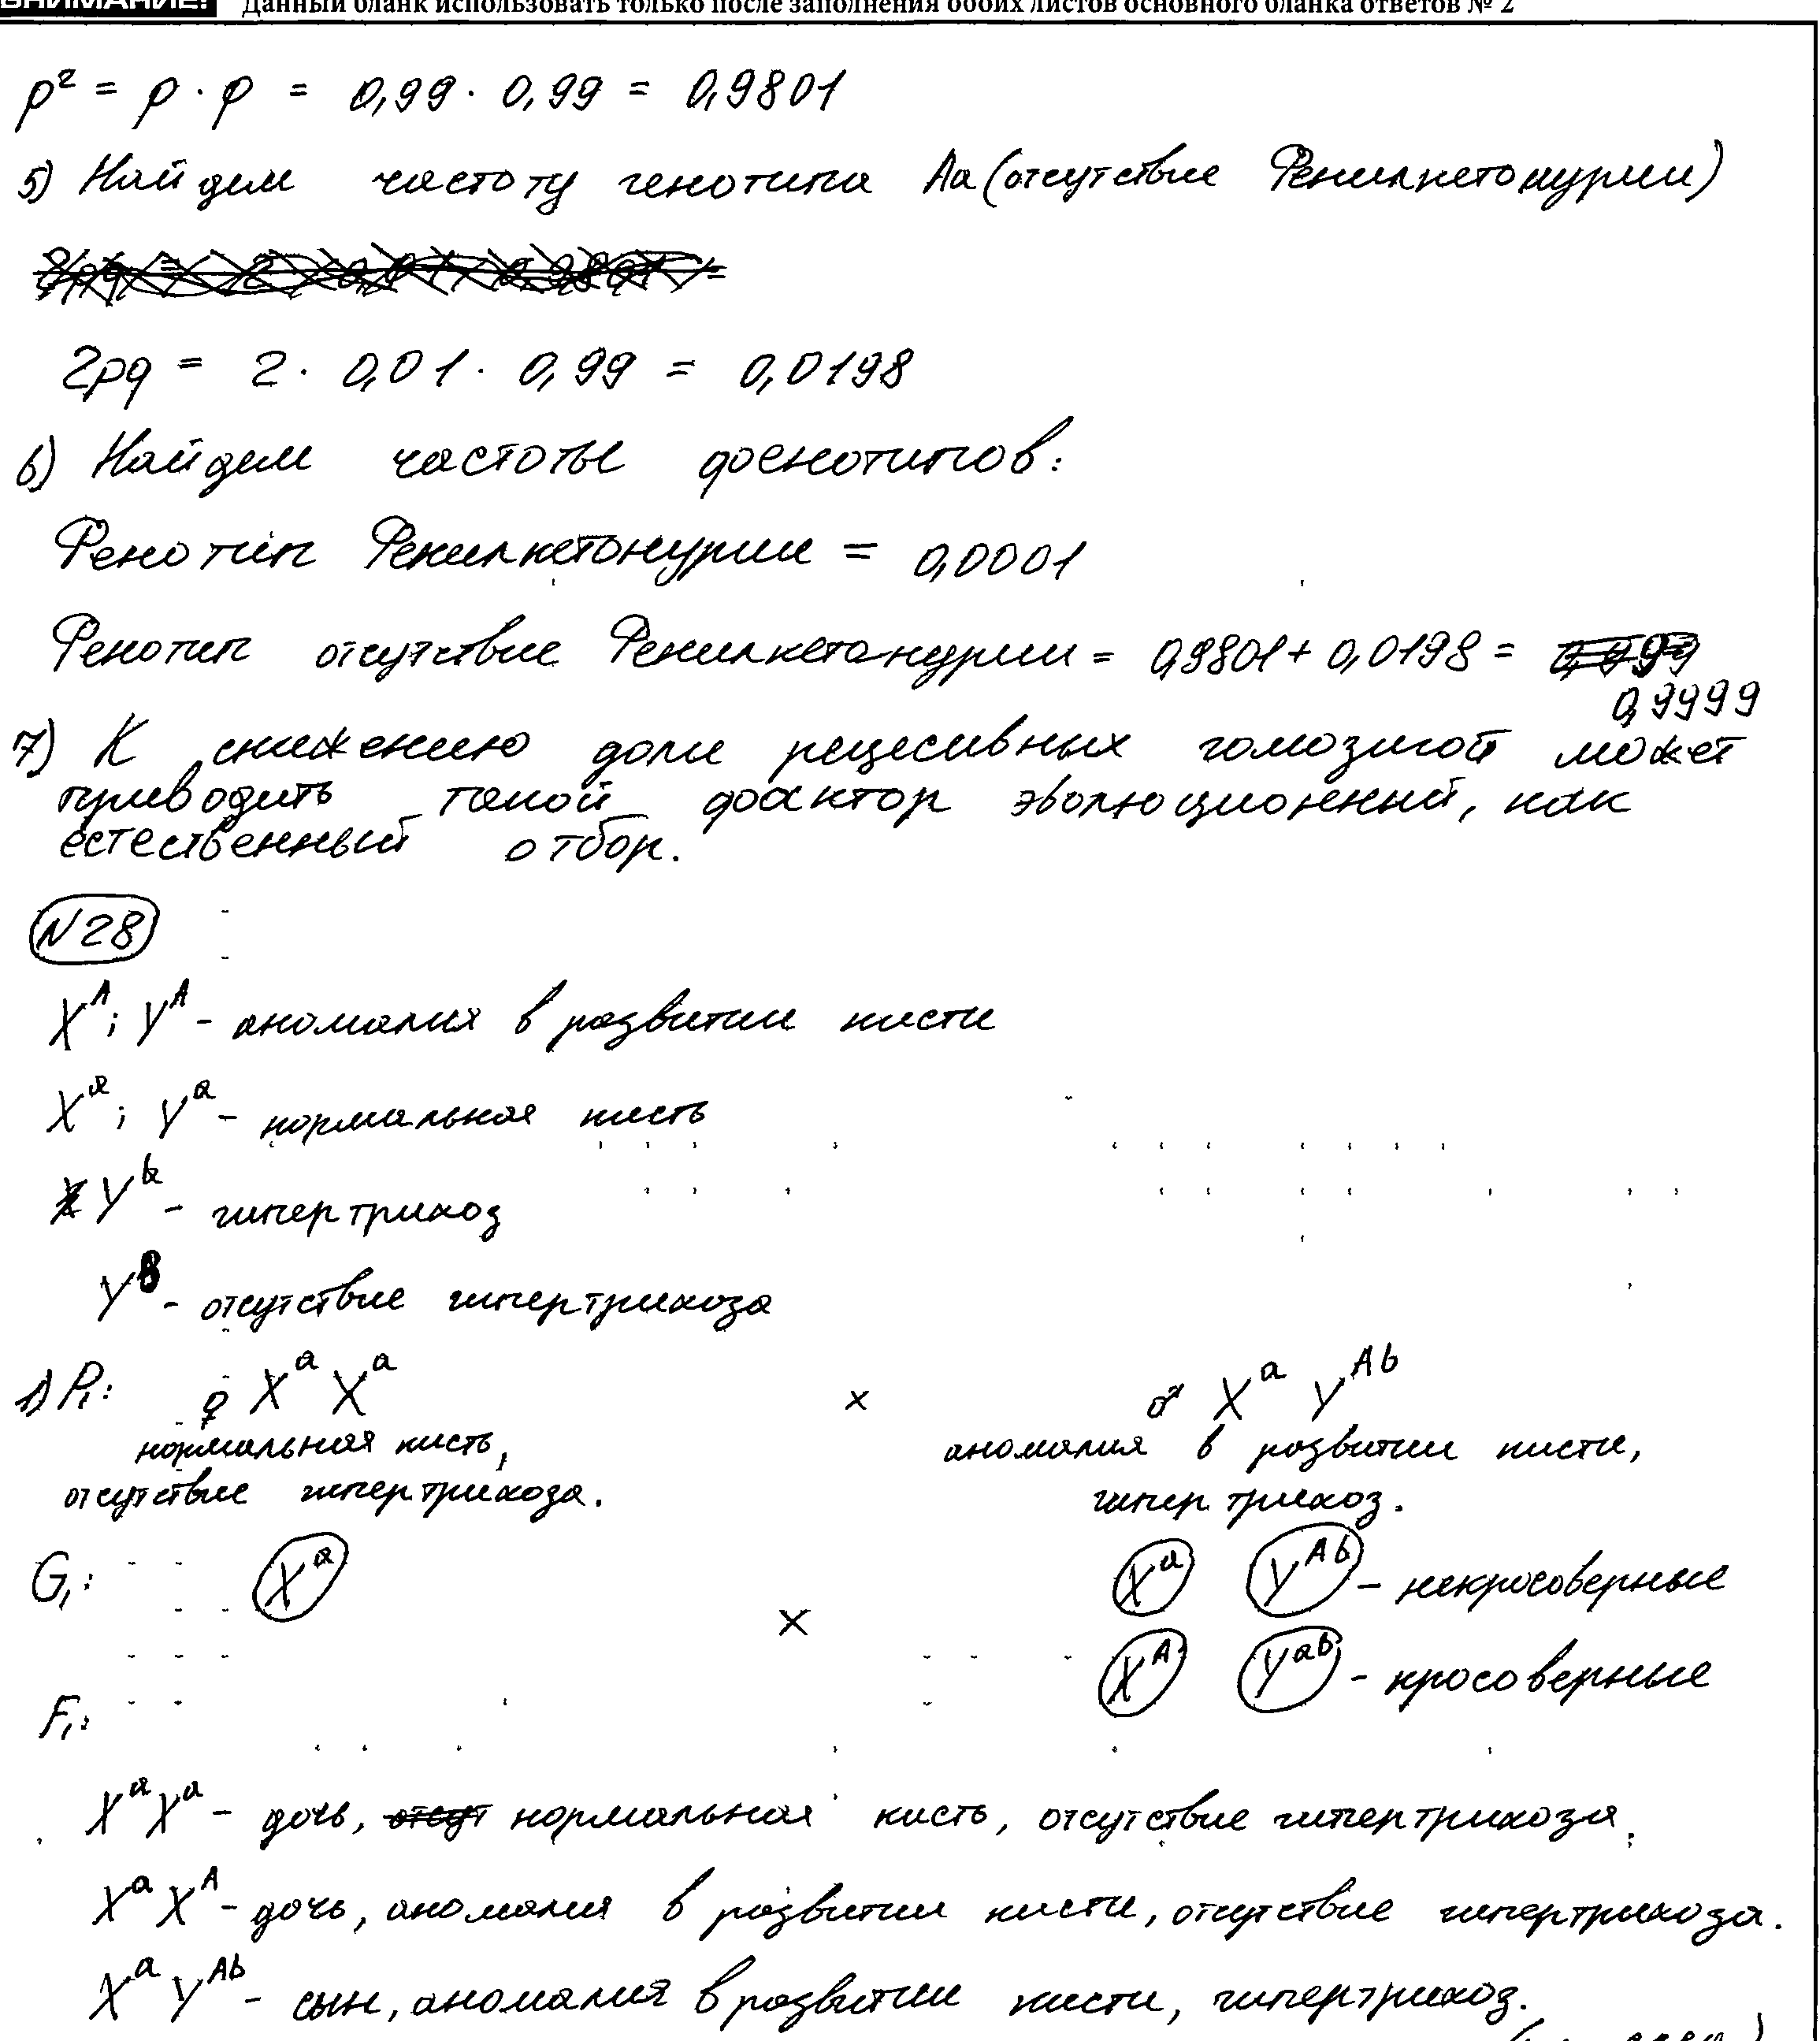 ВНИМАНИЕ! Данный бланк использовать только после заполнения обоих листов основного бланка ответов № 2
p² = p · p = 0,99 · 0,99 = 0,9801
5) Найдем частоту генотипа Aa (отсутствие Фенилкетонурии)
2pq = 2 · 0,01 · 0,99 = 0,0198
6) Найдем частоты фенотипов:
Фенотип Фенилкетонурии = 0,0001
Фенотип отсутствие Фенилкетонурии = 0,9801 + 0,0198 =
0,9999
7) К снижению доли рецесивных гомозигот может
приводить такой фактор эволюционный, как
естественный отбор.
N28
X^A; Y^A - аномалия в развитии кисти
X^a; Y^a - нормальная кисть
Y^b - гипертрихоз
Y^B - отсутствие гипертрихоза
1) P₁: ♀ X^a X^a × ♂ X^a Y^Ab
нормальная кисть, аномалия в развитии кисти,
отсутствие гипертрихоза. гипертрихоз.
G₁: X^a X^a Y^Ab - некросоверные
× X^A Y^ab - кросоверные
F₁:
X^a X^a - дочь, нормальная кисть, отсутствие гипертрихоза.
X^a X^A - дочь, аномалия в развитии кисти, отсутствие гипертрихоза.
X^a Y^Ab - сын, аномалия в развитии кисти, гипертрихоз.